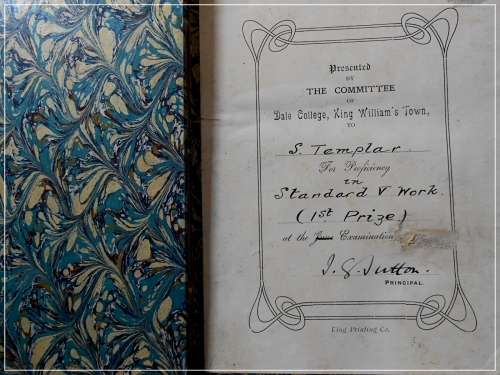 Presented
BY
THE COMMITTEE
OF
Dale College, King William's Town,
TO
S. Templar
For Proficiency
in
Standard V Work.
(1st Prize)
at the June Examination,
J. G. Sutton.
PRINCIPAL.
King Printing Co.